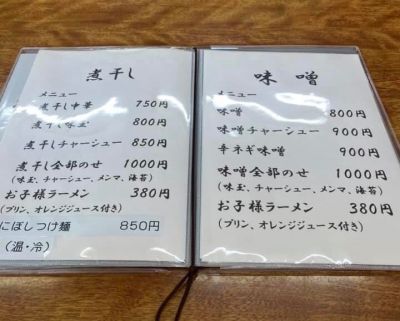 煮干し
メニュー
煮干し中華 750円
煮干し味玉 800円
煮干しチャーシュー 850円
煮干し全部のせ 1000円
(味玉、チャーシュー、メンマ、海苔)
お子様ラーメン 380円
(プリン、オレンジジュース付き)
にぼしつけ麺 850円
(温・冷)
味噌
メニュー
味噌 800円
味噌チャーシュー 900円
辛ネギ味噌 900円
味噌全部のせ 1000円
(味玉、チャーシュー、メンマ、海苔)
お子様ラーメン 380円
(プリン、オレンジジュース付き)